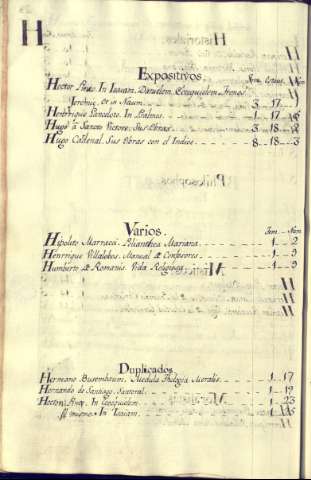 H
Expositivos. Tom. Caxon. Num
Hector Pinto In Isaiam, Danielem, Ezequielem, Threnos
Jeremiæ, et in Naum. 3 17
Henrriquez Panedoto. In Psalmos. 1 17
Hugo à Sancto Victore. Sus Obras 3 18 2
Hugo Cardenal. Sus Obras con el Indice 8 18 3
Varios. Tom. Num
Hipolito Marracci. Polianthea Mariana. 1 2
Henrrique Villalobos. Manual de Confesores 1 3
Humberto de Romanis. Vida Religiosa 1 9
Duplicados
Hermano Busembaum. Medula Theologia Moralis. 1 17
Hernando de Santiago. Santoral 1 19
Hector Pinto. In Ezequielem 1 23
El mismo. In Isaiam. 1